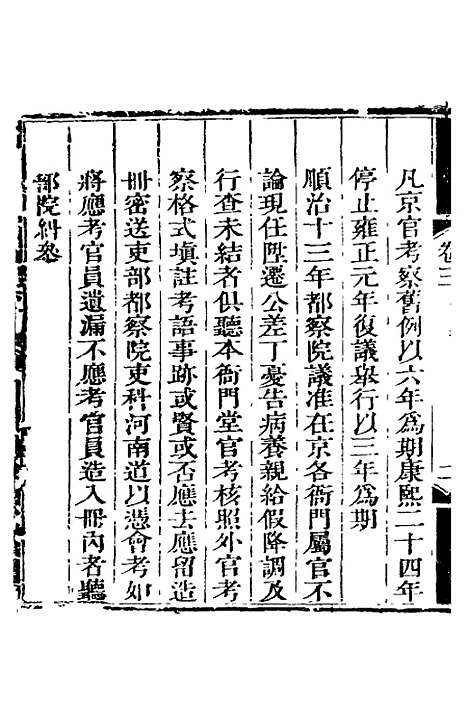 卷三
凡京官考察舊例以六年為期康熙二十四年
停止雍正元年復議舉行以三年為期
順治十三年都察院議准在京各衙門屬官不
論現任陞遷公差丁憂告病養親給假降調及
行查未結者俱聽本衙門堂官考核照外官考
察格式填註考語事跡或賢或否應去應留造
冊密送吏部都察院吏科河南道以憑會考如
將應考官員遺漏不應考官員造入冊內者聽
部院糾叅